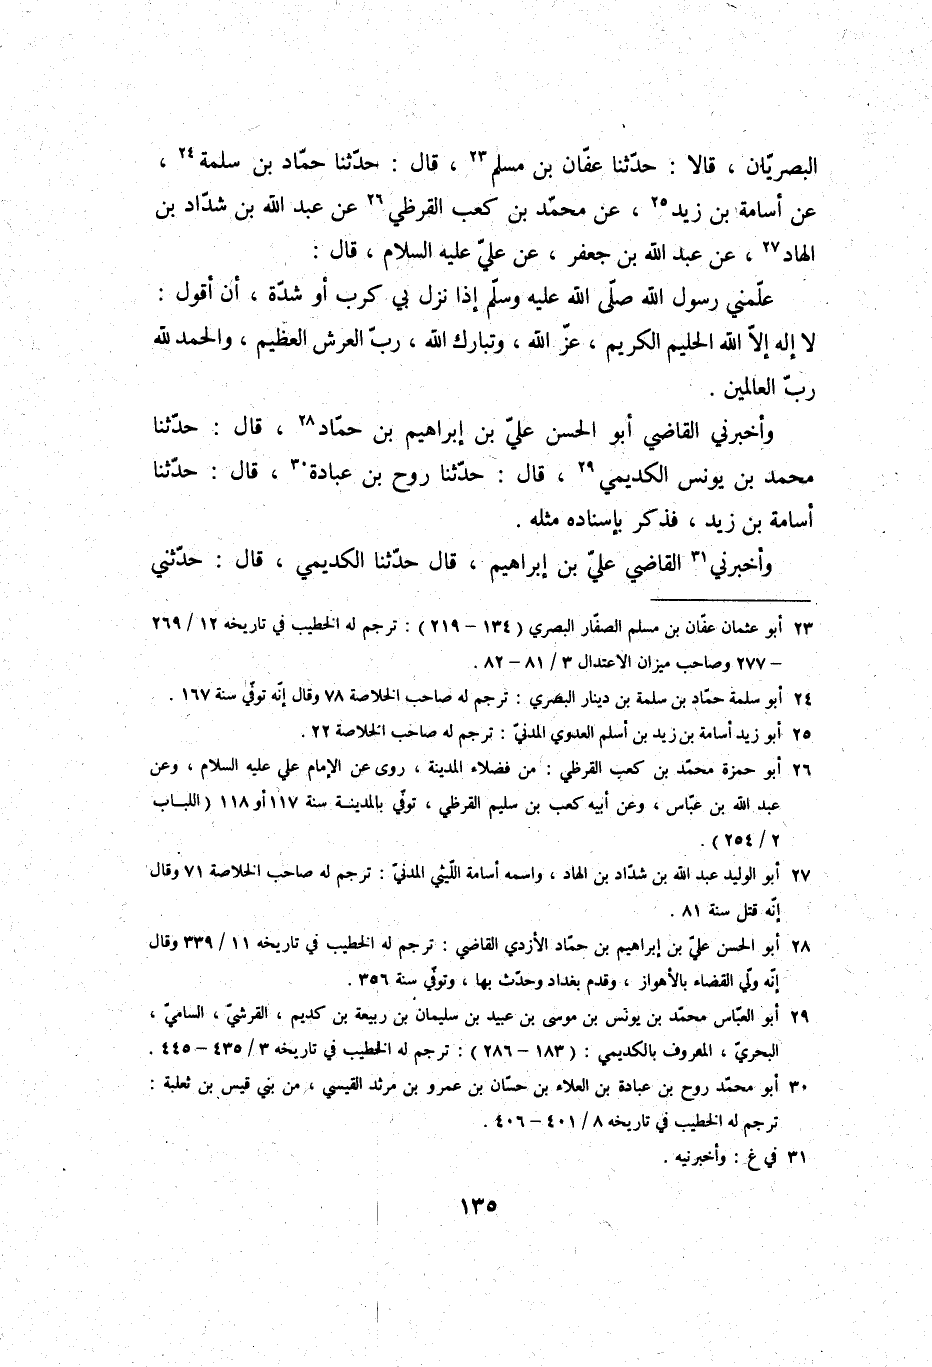 البصريّان ، قالا : حدّثنا عفّان بن مسلم٢٣ ، قال : حدّثنا حمّاد بن سلمة٢٤ ،
عن أسامة بن زيد٢٥ ، عن محمّد بن كعب القرظي٢٦ عن عبد الله بن شدّاد بن
الهاد٢٧ ، عن عبد الله بن جعفر ، عن عليّ عليه السلام ، قال :
علّمني رسول الله صلّى الله عليه وسلّم إذا نزل بي كرب أو شدّة ، أن أقول :
لا إله إلاّ الله الحليم الكريم ، عزّ الله ، وتبارك الله ، ربّ العرش العظيم ، والحمد لله
ربّ العالمين .
وأخبرني القاضي أبو الحسن عليّ بن إبراهيم بن حمّاد٢٨ ، قال : حدّثنا
محمد بن يونس الكديمي٢٩ ، قال : حدّثنا روح بن عبادة٣٠ ، قال : حدّثنا
أسامة بن زيد ، فذكر بإسناده مثله .
وأخبرني٣١ القاضي عليّ بن إبراهيم ، قال حدّثنا الكديمي ، قال : حدّثني
٢٣ أبو عثمان عفّان بن مسلم الصفّار البصري ( ١٣٤ – ٢١٩ ) : ترجم له الخطيب في تاريخه ١٢ / ٢٦٩
– ٢٧٧ وصاحب ميزان الاعتدال ٣ / ٨١ – ٨٢ .
٢٤ أبو سلمة حمّاد بن سلمة بن دينار البصري : ترجم له صاحب الخلاصة ٧٨ وقال إنّه توفّي سنة ١٦٧ .
٢٥ أبو زيد أسامة بن زيد بن أسلم العدوي المدنيّ : ترجم له صاحب الخلاصة ٢٢ .
٢٦ أبو حمزة محمّد بن كعب القرظي : من فضلاء المدينة ، روى عن الإمام علي عليه السلام ، وعن
عبد الله بن عبّاس ، وعن أبيه كعب بن سليم القرظي ، توفّي بالمدينـة سنة ١١٧ أو ١١٨ ( اللبـاب
٢ / ٢٥٤ ) .
٢٧ أبو الوليد عبد الله بن شدّاد بن الهاد ، واسمه أسامة اللّيثي المدنيّ : ترجم له صاحب الخلاصة ٧١ وقال
إنّه قتل سنة ٨١ .
٢٨ أبو الحسن عليّ بن إبراهيم بن حمّاد الأزدي القاضي : ترجم له الخطيب في تاريخه ١١ / ٣٣٩ وقال
إنّه ولّي القضاء بالأهواز ، وقدم بغداد وحدّث بها ، وتوفّي سنة ٣٥٦ .
٢٩ أبو العبّاس محمّد بن يونس بن موسى بن عبيد بن سليمان بن ربيعة بن كديم ، القرشيّ ، الساميّ ،
البحريّ ، المعروف بالكديمي : ( ١٨٣ – ٢٨٦ ) : ترجم له الخطيب في تاريخه ٣ / ٤٣٥ – ٤٤٥ .
٣٠ أبو محمّد روح بن عبادة بن العلاء بن حسّان بن عمرو بن مرثد القيسي ، من بني قيس بن ثعلبة :
ترجم له الخطيب في تاريخه ٨ / ٤٠١ – ٤٠٦ .
٣١ في غ : وأخبرنيه .
١٣٥